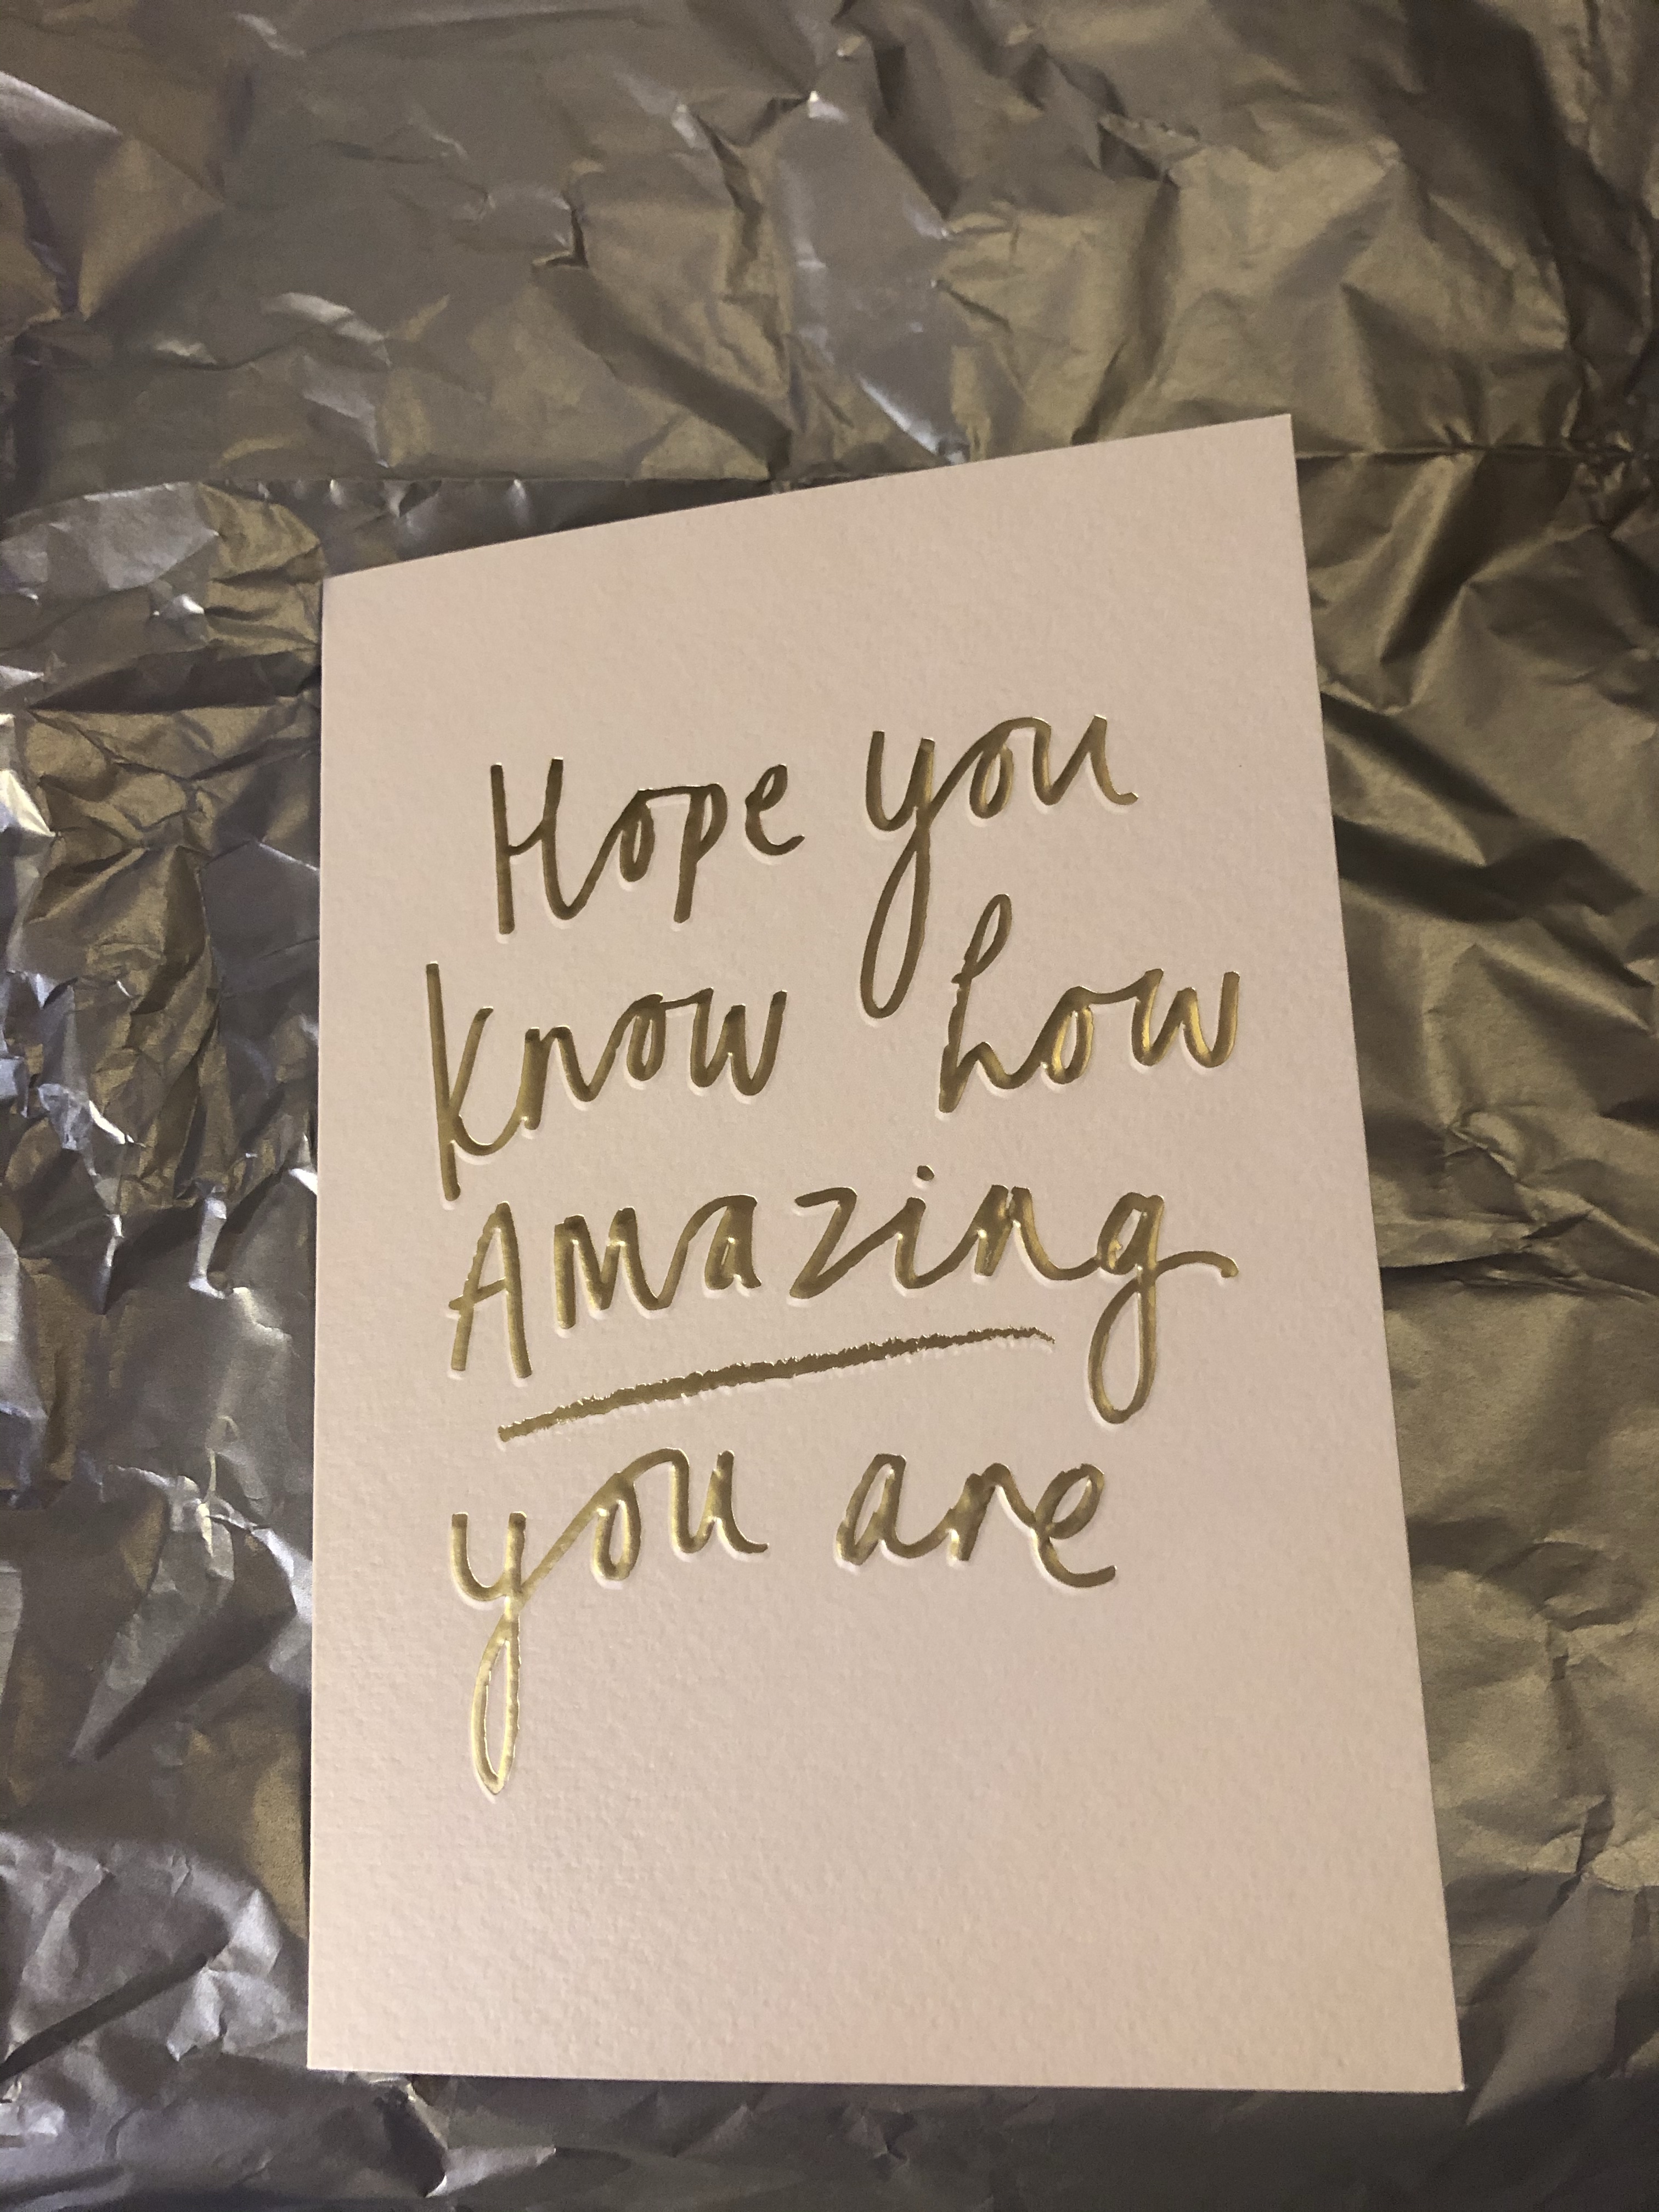 Hope you
know how
Amazing
you are